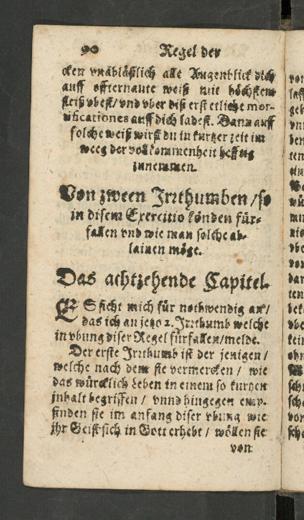 90 Regel der
cken vnabläßlich alle Augenblick dich
auff offternante weiß mit höchstem
fleiß vbest / vnd vber diß erst etliche mor-
tificationes auff dich ladest. Dann auff
solche weiß wirst du in kurtzer zeit im
weeg der vollkommenheit hefftig
zunemmen.
Von zween Irrthumben / so
in disem Exercitio könden für-
fallen vnd wie man solche ab-
lainen möge.
Das achtzehende Capitel.
ES sicht mich für nothwendig an /
das ich an jetzo 2. Irrthumb welche
in vbung diser Regel fürfallen / melde.
Der erste Irrthumb ist der jenigen /
welche nach dem sie vermercken / wie
das würcklich Leben in einem so kurtzen
inhalt begriffen / vnnd hingegen emp-
finden sie im anfang diser vbung wie
jhr Geist sich in Gott erhebt / wöllen sie
von